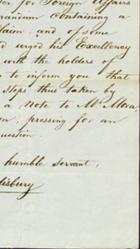 for Foreign Affairs
containing a
laim, and of some
urged his Excellency
with the holders of
to inform you that
steps thus taken by
a Note to Mr Mora,
pressing for an
uestion
humble servant,
lisbury